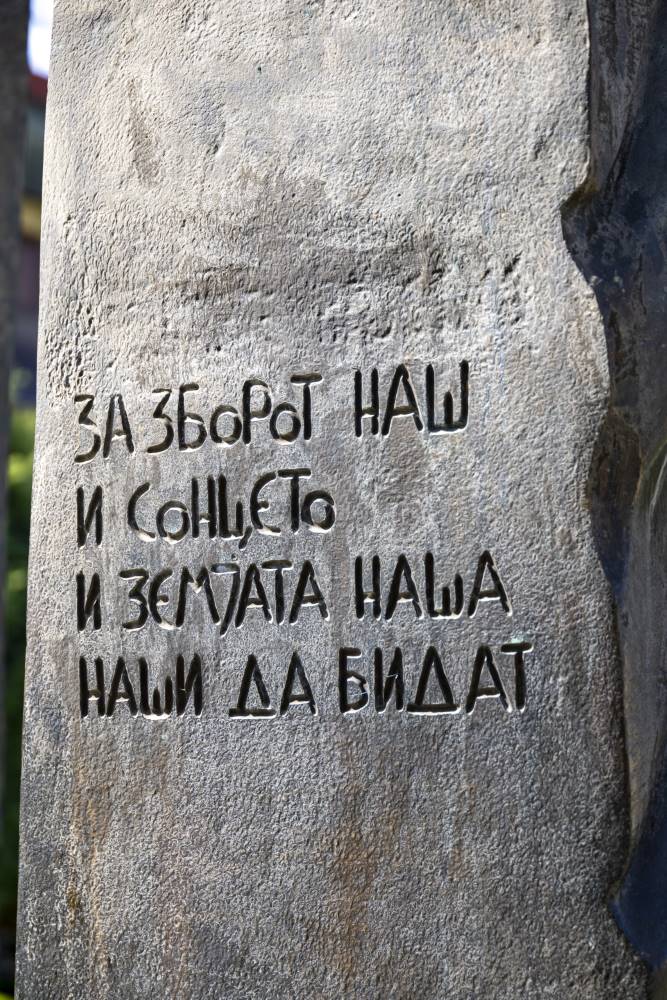 ЗА ЗБОРОТ НАШ
И СОНЦЕТО
И ЗЕМЈАТА НАША
НАШИ ДА БИДАТ